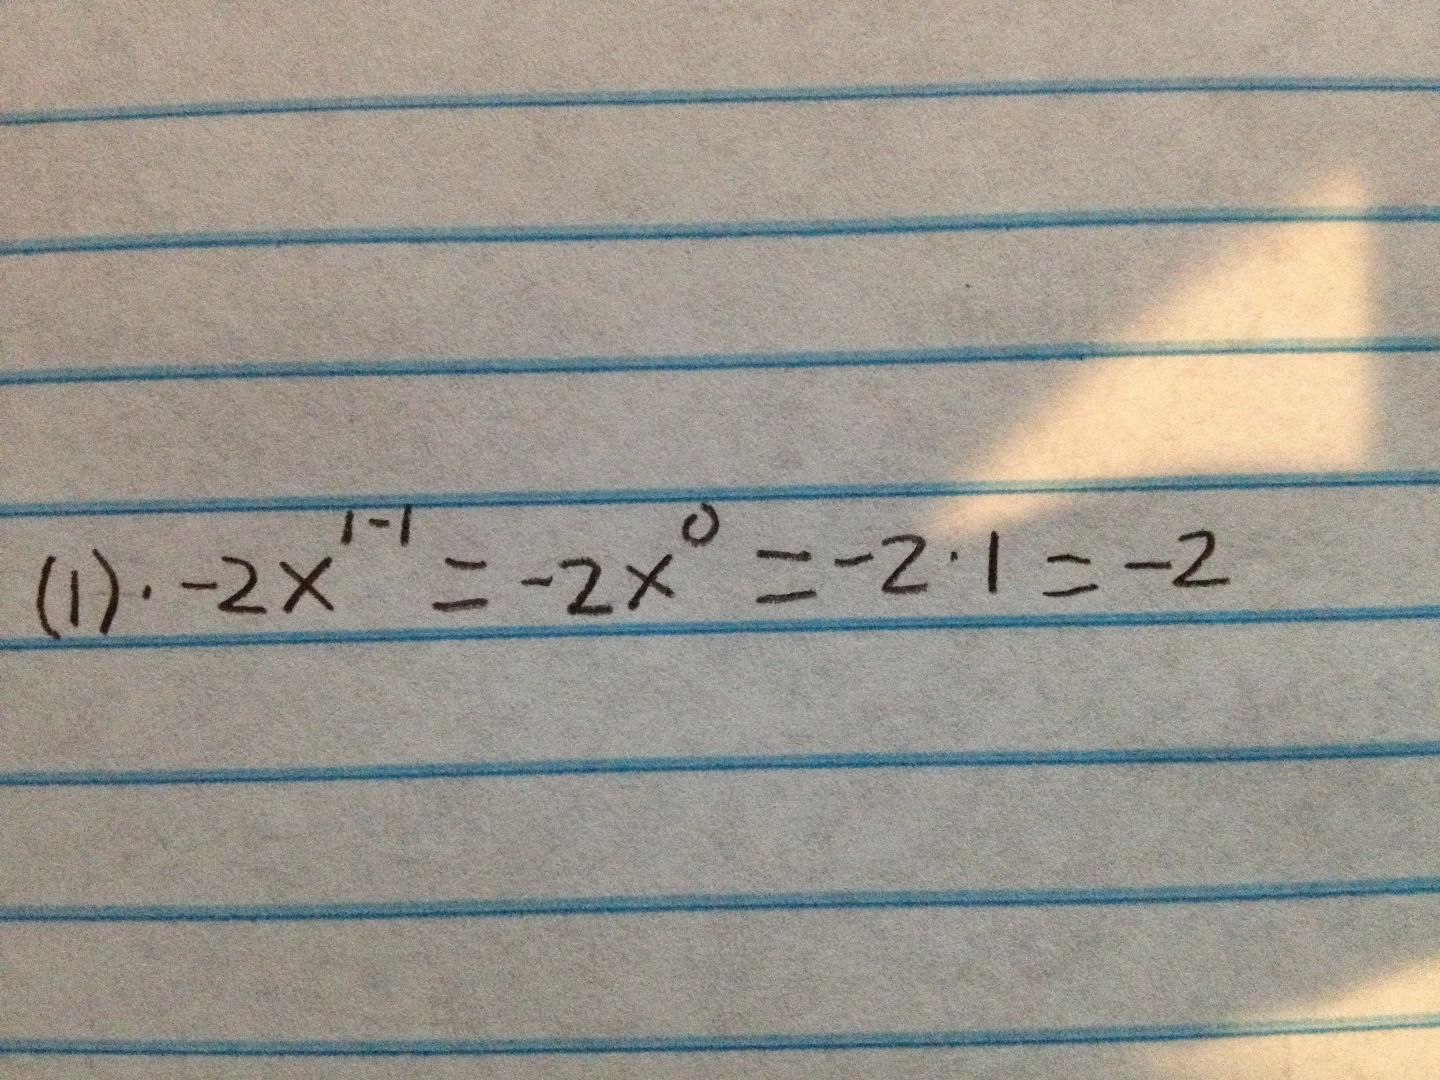 (1)· -2x^{1-1} = -2x^0 = -2·1 = -2